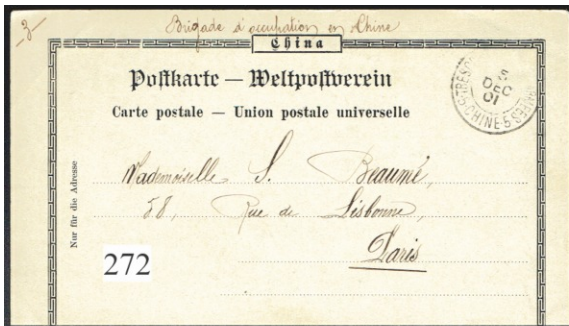 -3-
Brigade d'occupation en Chine
China
Postkarte — Weltpostverein
Carte postale — Union postale universelle
5
DEC
01
CHINE 5
Nur für die Adresse
Mademoiselle S. Beaumé,
58, Rue de Lisbonne,
Paris
272